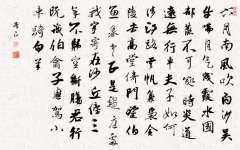 六月南風吹白沙吴
牛喘月氣成霞水國
鬱蒸不可處時炎道
遠無行車夫子如何
涉江路雲帆裊裊金
陵去高堂倚門望伯
魚魯中正是趨庭處
我家寄在沙丘傍三
年不歸空斷腸君行
既識伯禽子應駕小
車騎白羊